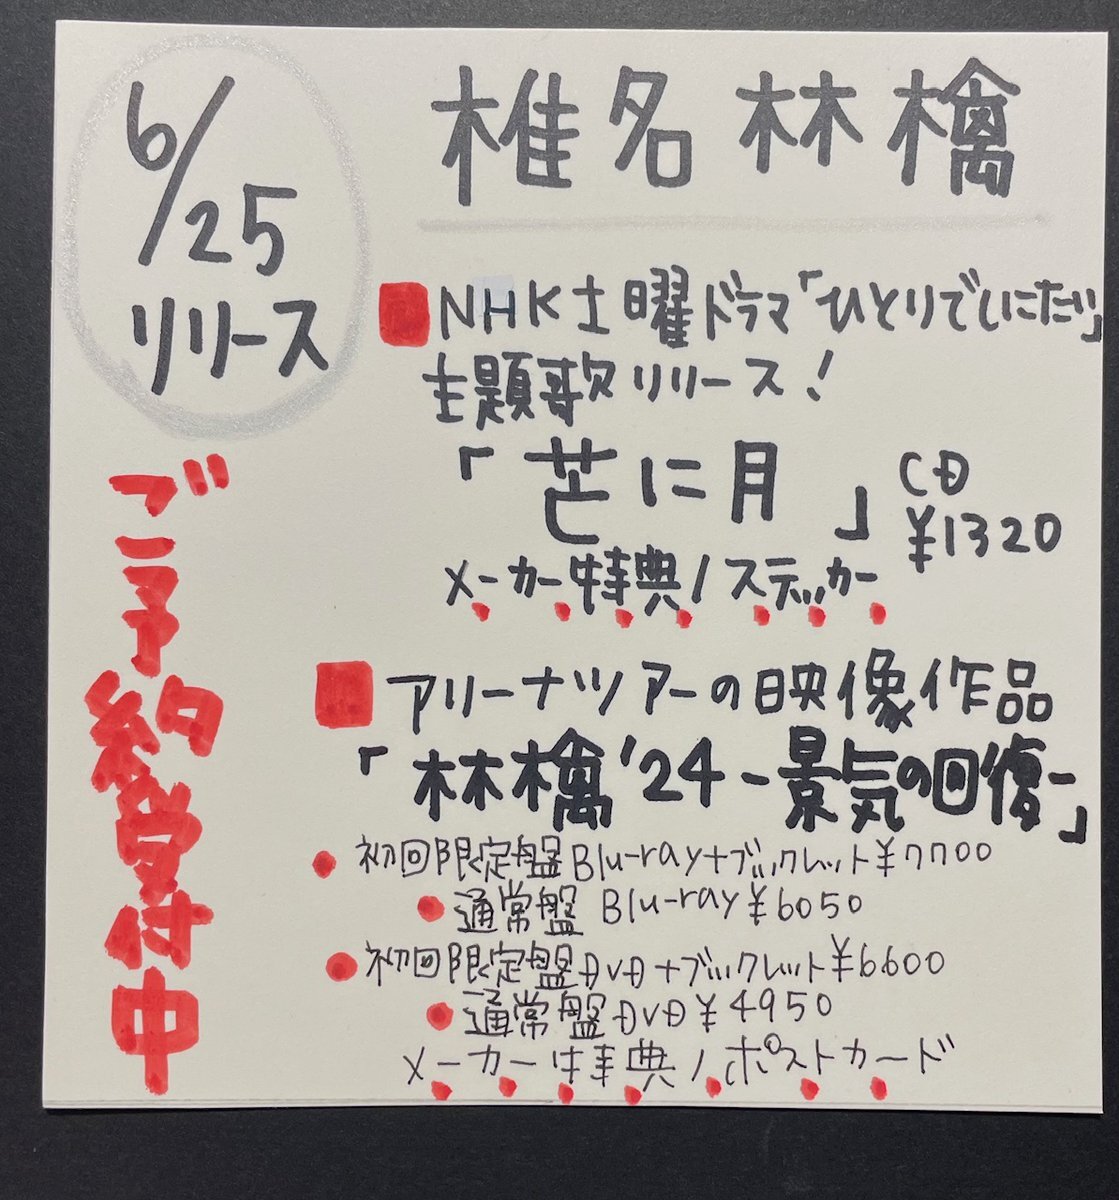 6/25
リリース
椎名林檎
NHK土曜ドラマ「ひとりでしにたい」
主題歌リリース！
「芒に月」
CD
¥1320
メーカー特典/ステッカー
アリーナツアーの映像作品
「林檎'24-景気の回復-」
初回限定盤Blu-ray+ブックレット¥7700
通常盤 Blu-ray¥6050
初回限定盤DVD+ブックレット¥6600
通常盤DVD¥4950
メーカー特典/ポストカード
ご予約受付中